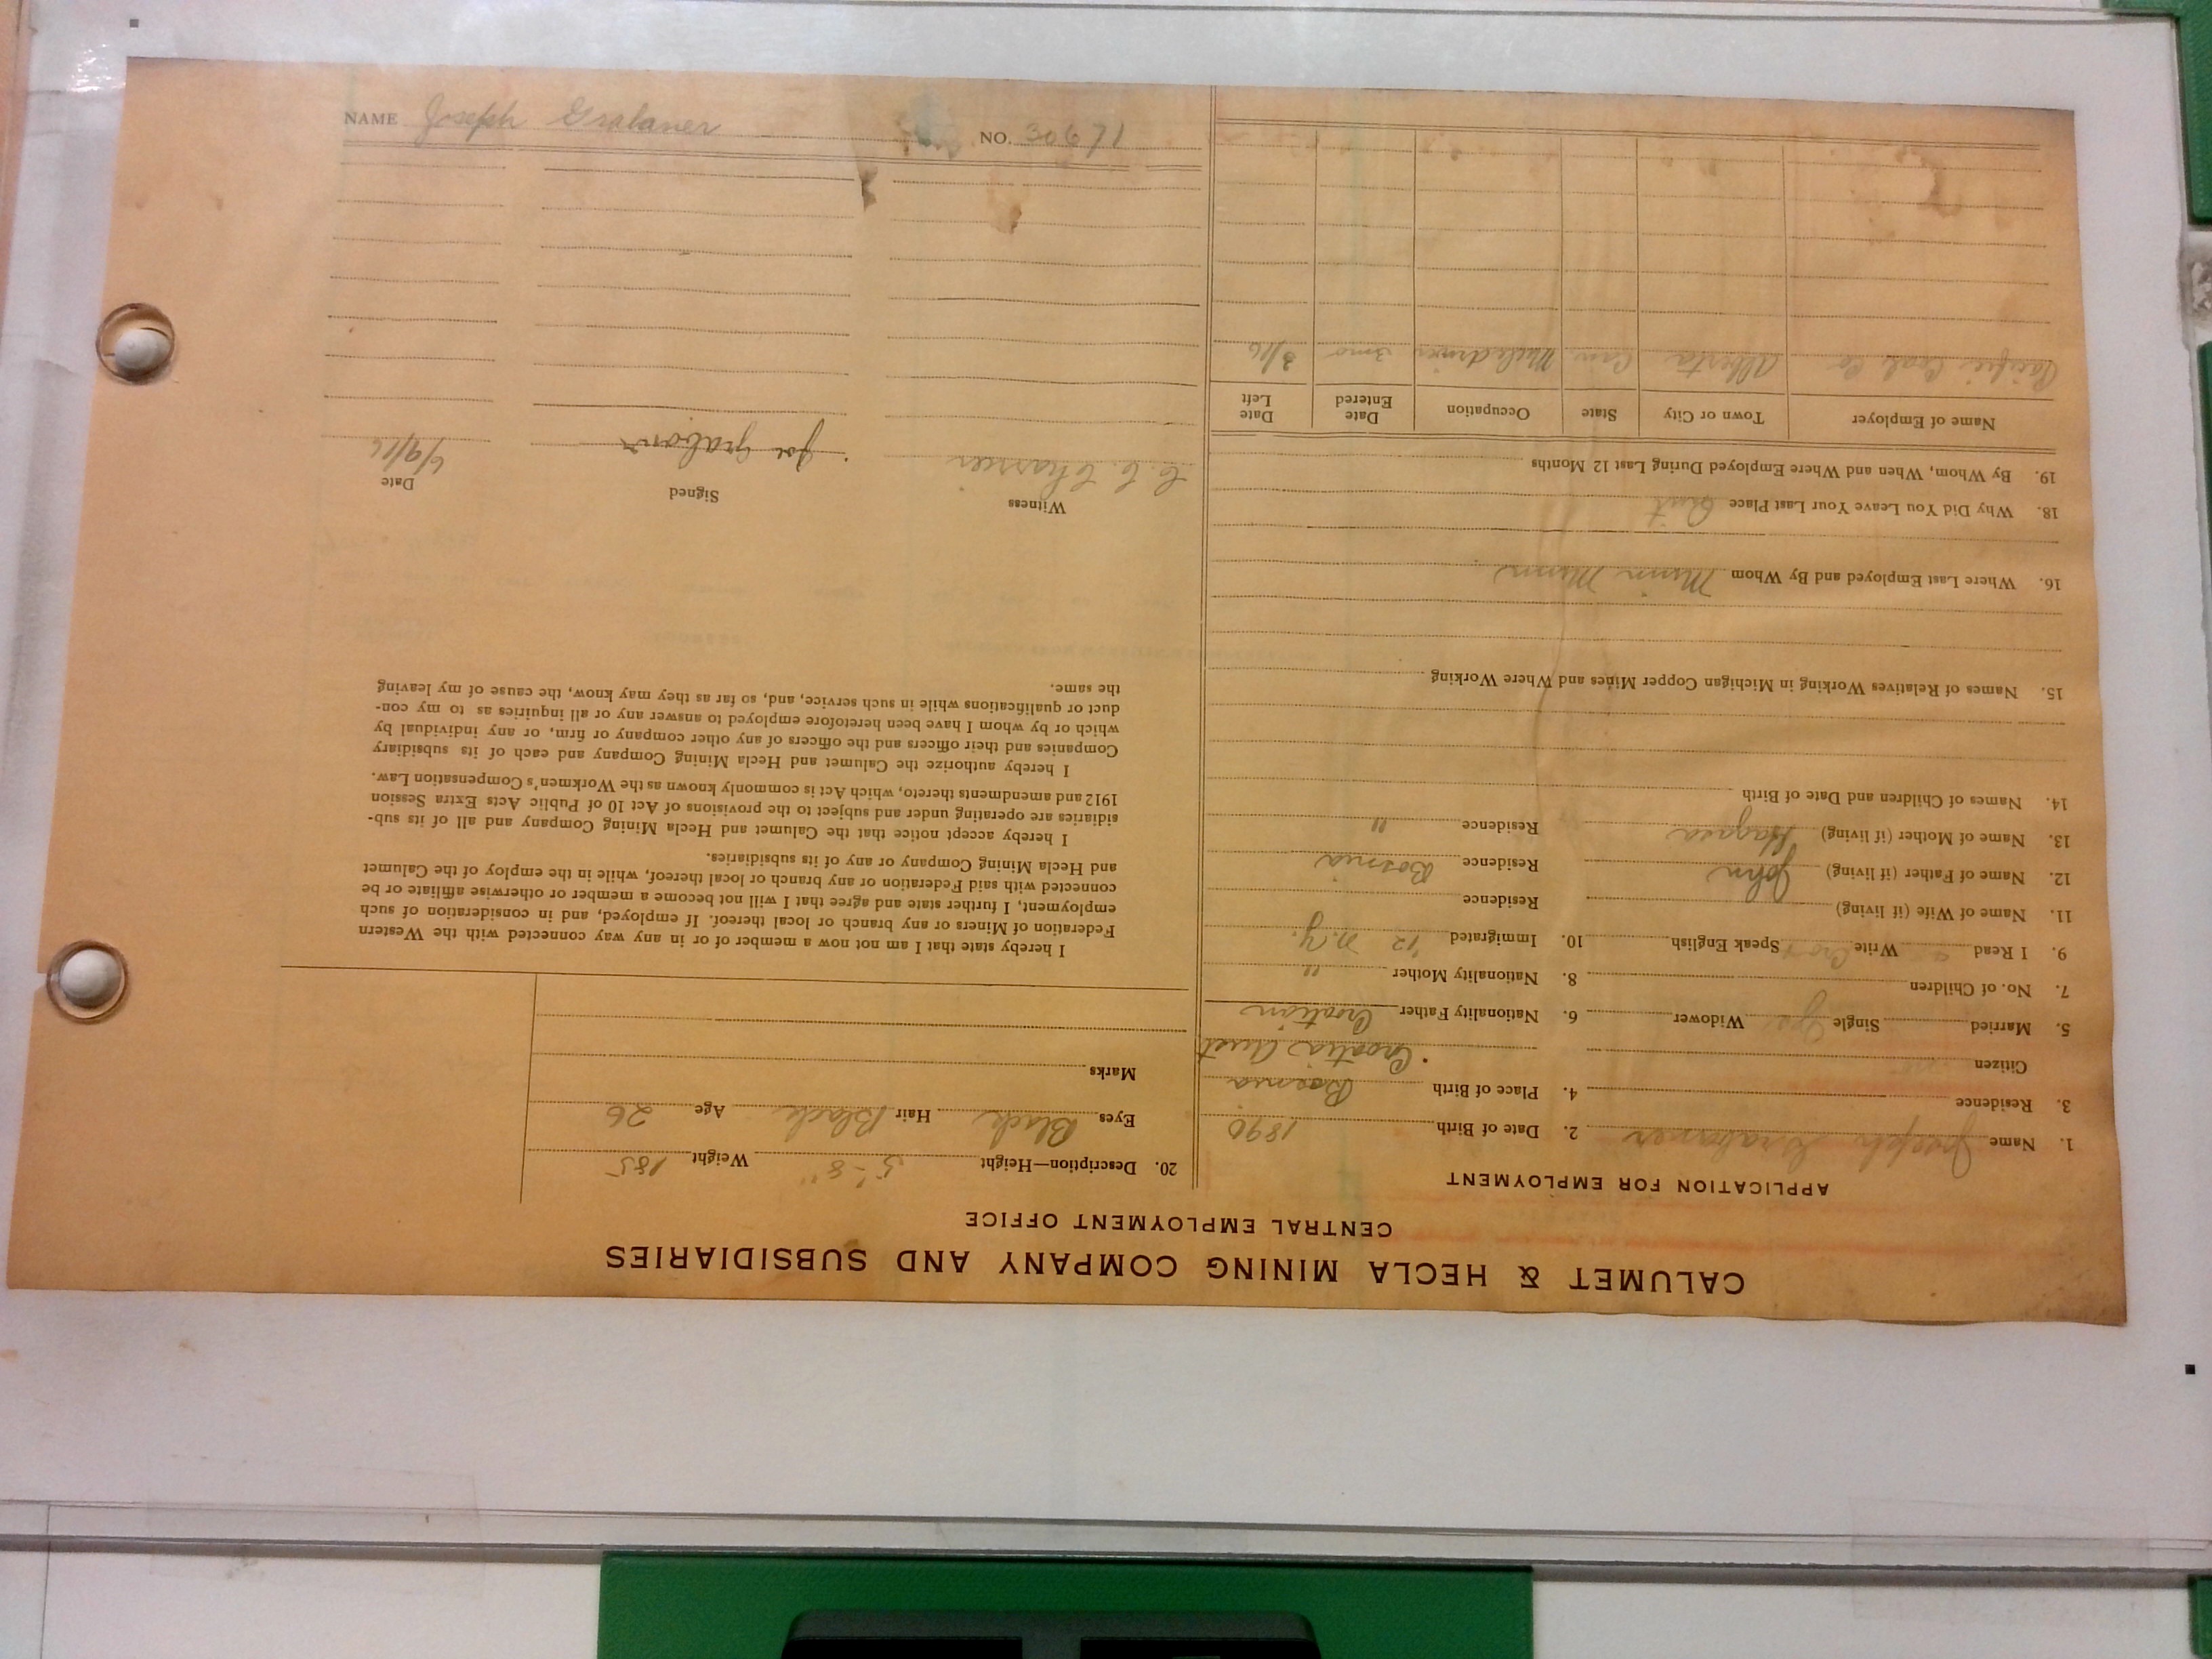 CALUMET & HECLA MINING COMPANY AND SUBSIDIARIES
CENTRAL EMPLOYMENT OFFICE
APPLICATION FOR EMPLOYMENT
1. Name Joseph Grabaner 2. Date of Birth 1890
3. Residence 4. Place of Birth Bosnia
Citizen Croatia Aust
5. Married Single Yes Widower 6. Nationality Father Croatian
7. No. of Children 8. Nationality Mother "
9. I Read Write Cro Speak English 10. Immigrated '12 N.Y.
11. Name of Wife (if living) Residence
12. Name of Father (if living) John Residence Bosnia
13. Name of Mother (if living) Residence "
14. Names of Children and Date of Birth
15. Names of Relatives Working in Michigan Copper Mines and Where Working
16. Where Last Employed and By Whom Minn
18. Why Did You Leave Your Last Place Quit
19. By Whom, When and Where Employed During Last 12 Months
Name of Employer Town or City State Occupation Date Entered Date Left
Pacific Coal Co Alberta Can. Muledriver 3mo 3/16
20. Description—Height 5'-8" Weight 185
Eyes Black Hair Black Age 26
Marks
I hereby state that I am not now a member of or in any way connected with the Western
Federation of Miners or any branch or local thereof. If employed, and in consideration of such
employment, I further state and agree that I will not become a member or otherwise affiliate or be
connected with said Federation or any branch or local thereof, while in the employ of the Calumet
and Hecla Mining Company or any of its subsidiaries.
I hereby accept notice that the Calumet and Hecla Mining Company and all of its sub-
sidiaries are operating under and subject to the provisions of Act 10 of Public Acts Extra Session
1912 and amendments thereto, which Act is commonly known as the Workmen's Compensation Law.
I hereby authorize the Calumet and Hecla Mining Company and each of its subsidiary
Companies and their officers and the officers of any other company or firm, or any individual by
which or by whom I have been heretofore employed to answer any or all inquiries as to my con-
duct or qualifications while in such service, and, so far as they may know, the cause of my leaving
the same.
Witness Signed Date
6/9/16
NAME Joseph Grabaner NO. 30671